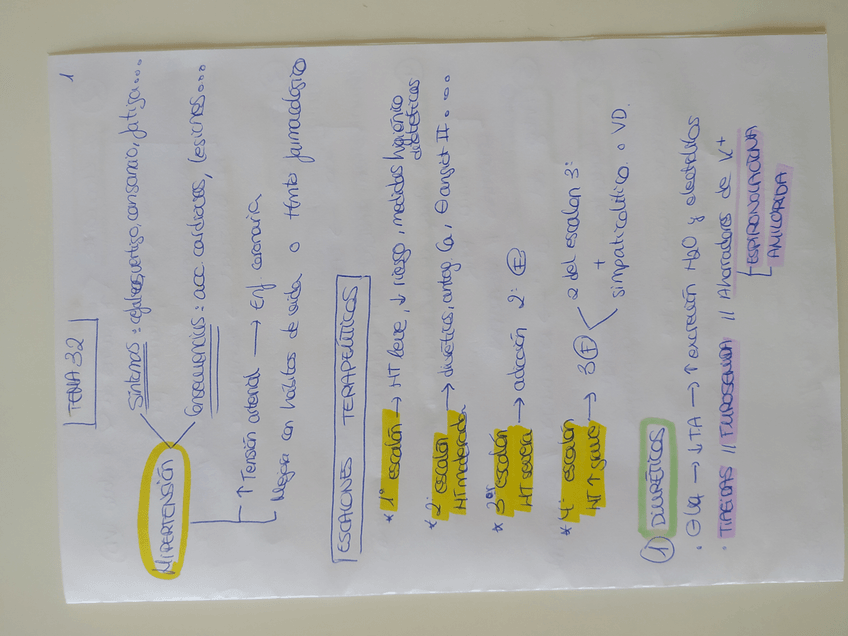 1
TEMA 32
HIPERTENSIÓN
Síntomas: cefaleas, vertigo, cansancio, fatiga...
Consecuencias: acc cardiacos, lesiones...
↑ Tensión arterial → Enf coronaria
Mejora con hábitos de vida o tmto farmacológico
ESCALONES TERAPEÚTICOS
* 1º escalón → HT leve, ↓ riesgo, medidas higiénico dietéticas
* 2º escalón → diuréticos, antag Ca, ⊖ angiot II....
HT moderada
* 3er escalón → adición 2º Ⓕ
HT severa
* 4º escalón → 3 Ⓕ < 2 del escalón 3º
HT ↑ grave + simpaticolítico o VD.
① DIURÉTICOS
· ⊖ → ↓TA → ↑ excreción H2O y electrolitos
· TIAZIDAS // FUROSEMIDA // Ahorradores de K+
ESPIRONOLACTONA
AMILORIDA